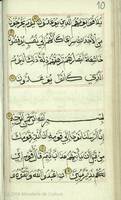 10
يلقوا يومهم الذي يوعدون يوم يخرجون
من الاجداث سراعا كانهم الى نصب يوفضون
خشعة ابصرهم ترهقهم ذلة ذلك اليوم
الذي كانوا يوعدون
بسم الله الرحمن الرحيم
انا ارسلنا نوحا الى قومه ان انذر قومك
من قبل ان ياتيهم عذاب اليم قال يقوم
اني لكم نذير مبين
Ministerio de Cultura